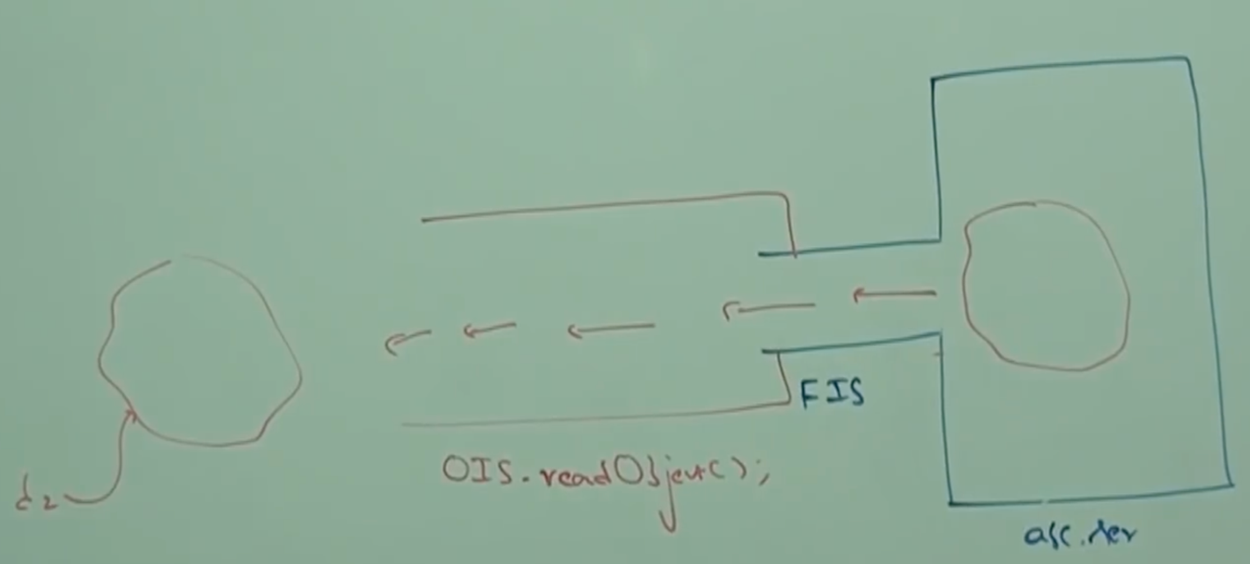 FIS
OIS.readObject();
d2
abc.ser